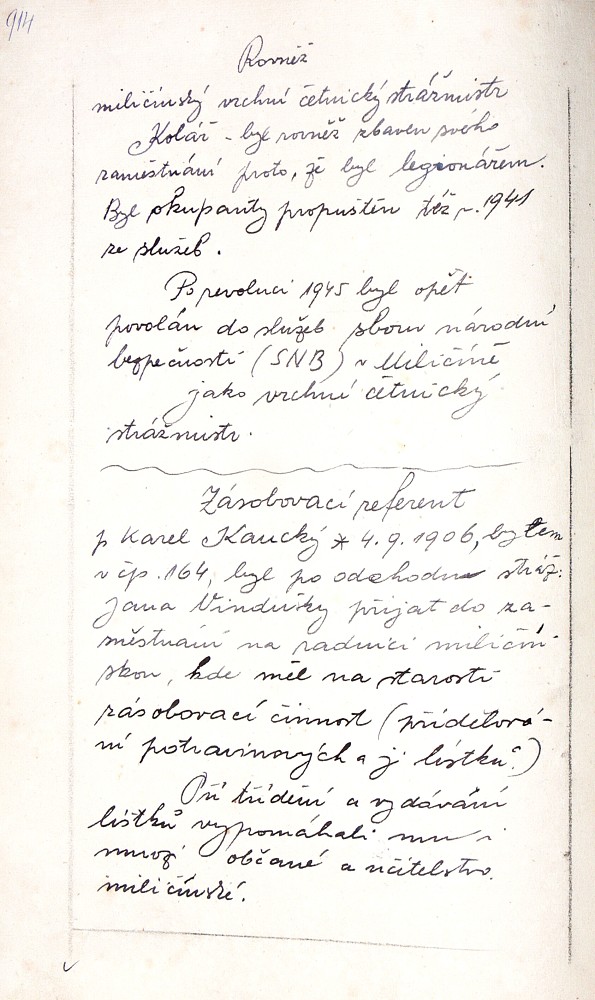 914
Rovněž
miličínský vrchní četnický strážmistr
Kolář - byl rovněž zbaven svého
zaměstnání proto, že byl legionářem.
Byl okupanty propuštěn též r. 1941
ze služeb.
Po revoluci 1945 byl opět
povolán do služeb sboru národní
bezpečnosti (SNB) v Miličíně
jako vrchní četnický
strážmistr.
Zásobovací referent
p Karel Kaucký * 4.9.1906, bytem
v čp. 164, byl po odchodu stráž:
Jana Vindušky přijat do za-
městnání na radnici miličín-
skou, kde měl na starosti
zásobovací činnost (přidělová-
ní potravinových a j. lístků.)
Při třídění a vydávání
lístků vypomáhali mu i
mnozí občané a učitelstvo
miličínské.